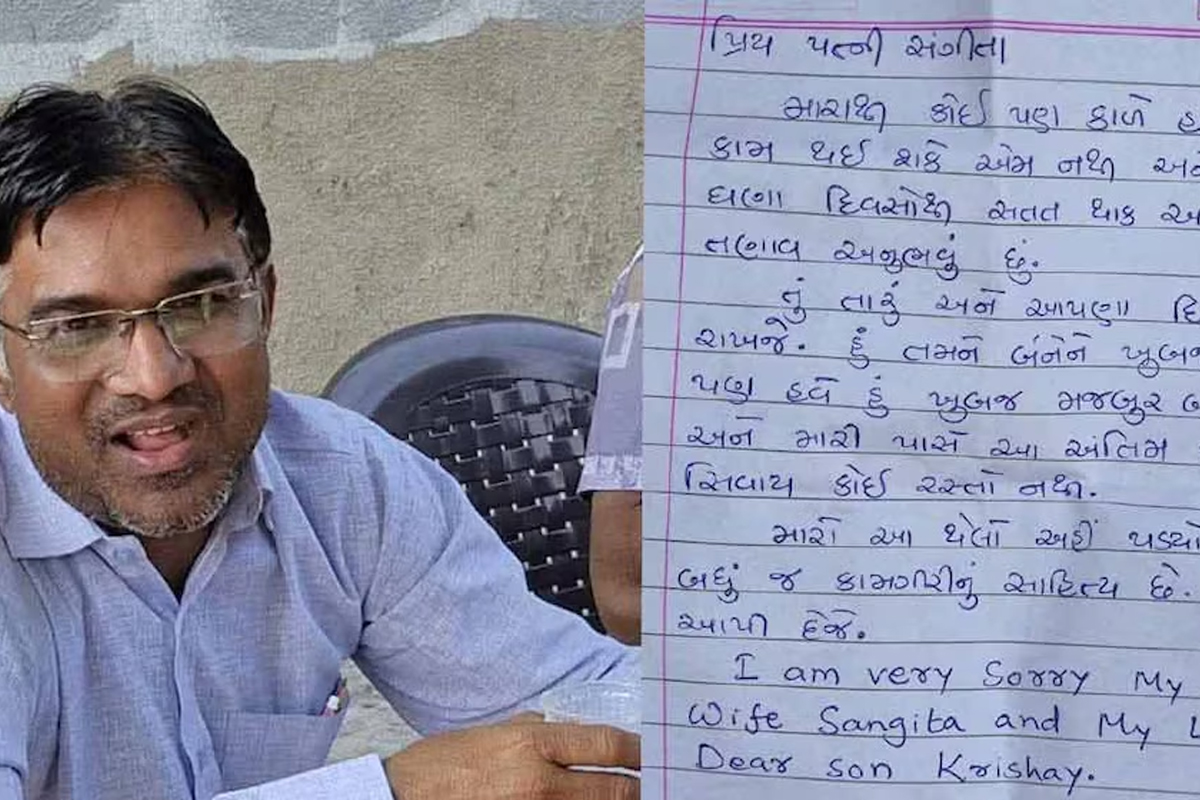 પ્રિય પત્ની સંગીતા
મારાથી કોઈ પણ કાળે હ
કામ થઈ શકે એમ નથી અને
ઘણા દિવસોથી સતત થાક અ
તણાવ અનુભવું છું.
તું તારું અને આપણા દિ
રાખજે. હું તમને બંનેને ખુબજ
પણ હવે હું ખુબજ મજબુર બ
અને મારી પાસે આ અંતિમ
સિવાય કોઈ રસ્તો નથી.
મારો આ થેલો અહીં પડ્યો
બધું જ કામગીરીનું સાહિત્ય છે.
આપી દેજે.
I am very Sorry My
Wife Sangita and My
Dear son Krishay.